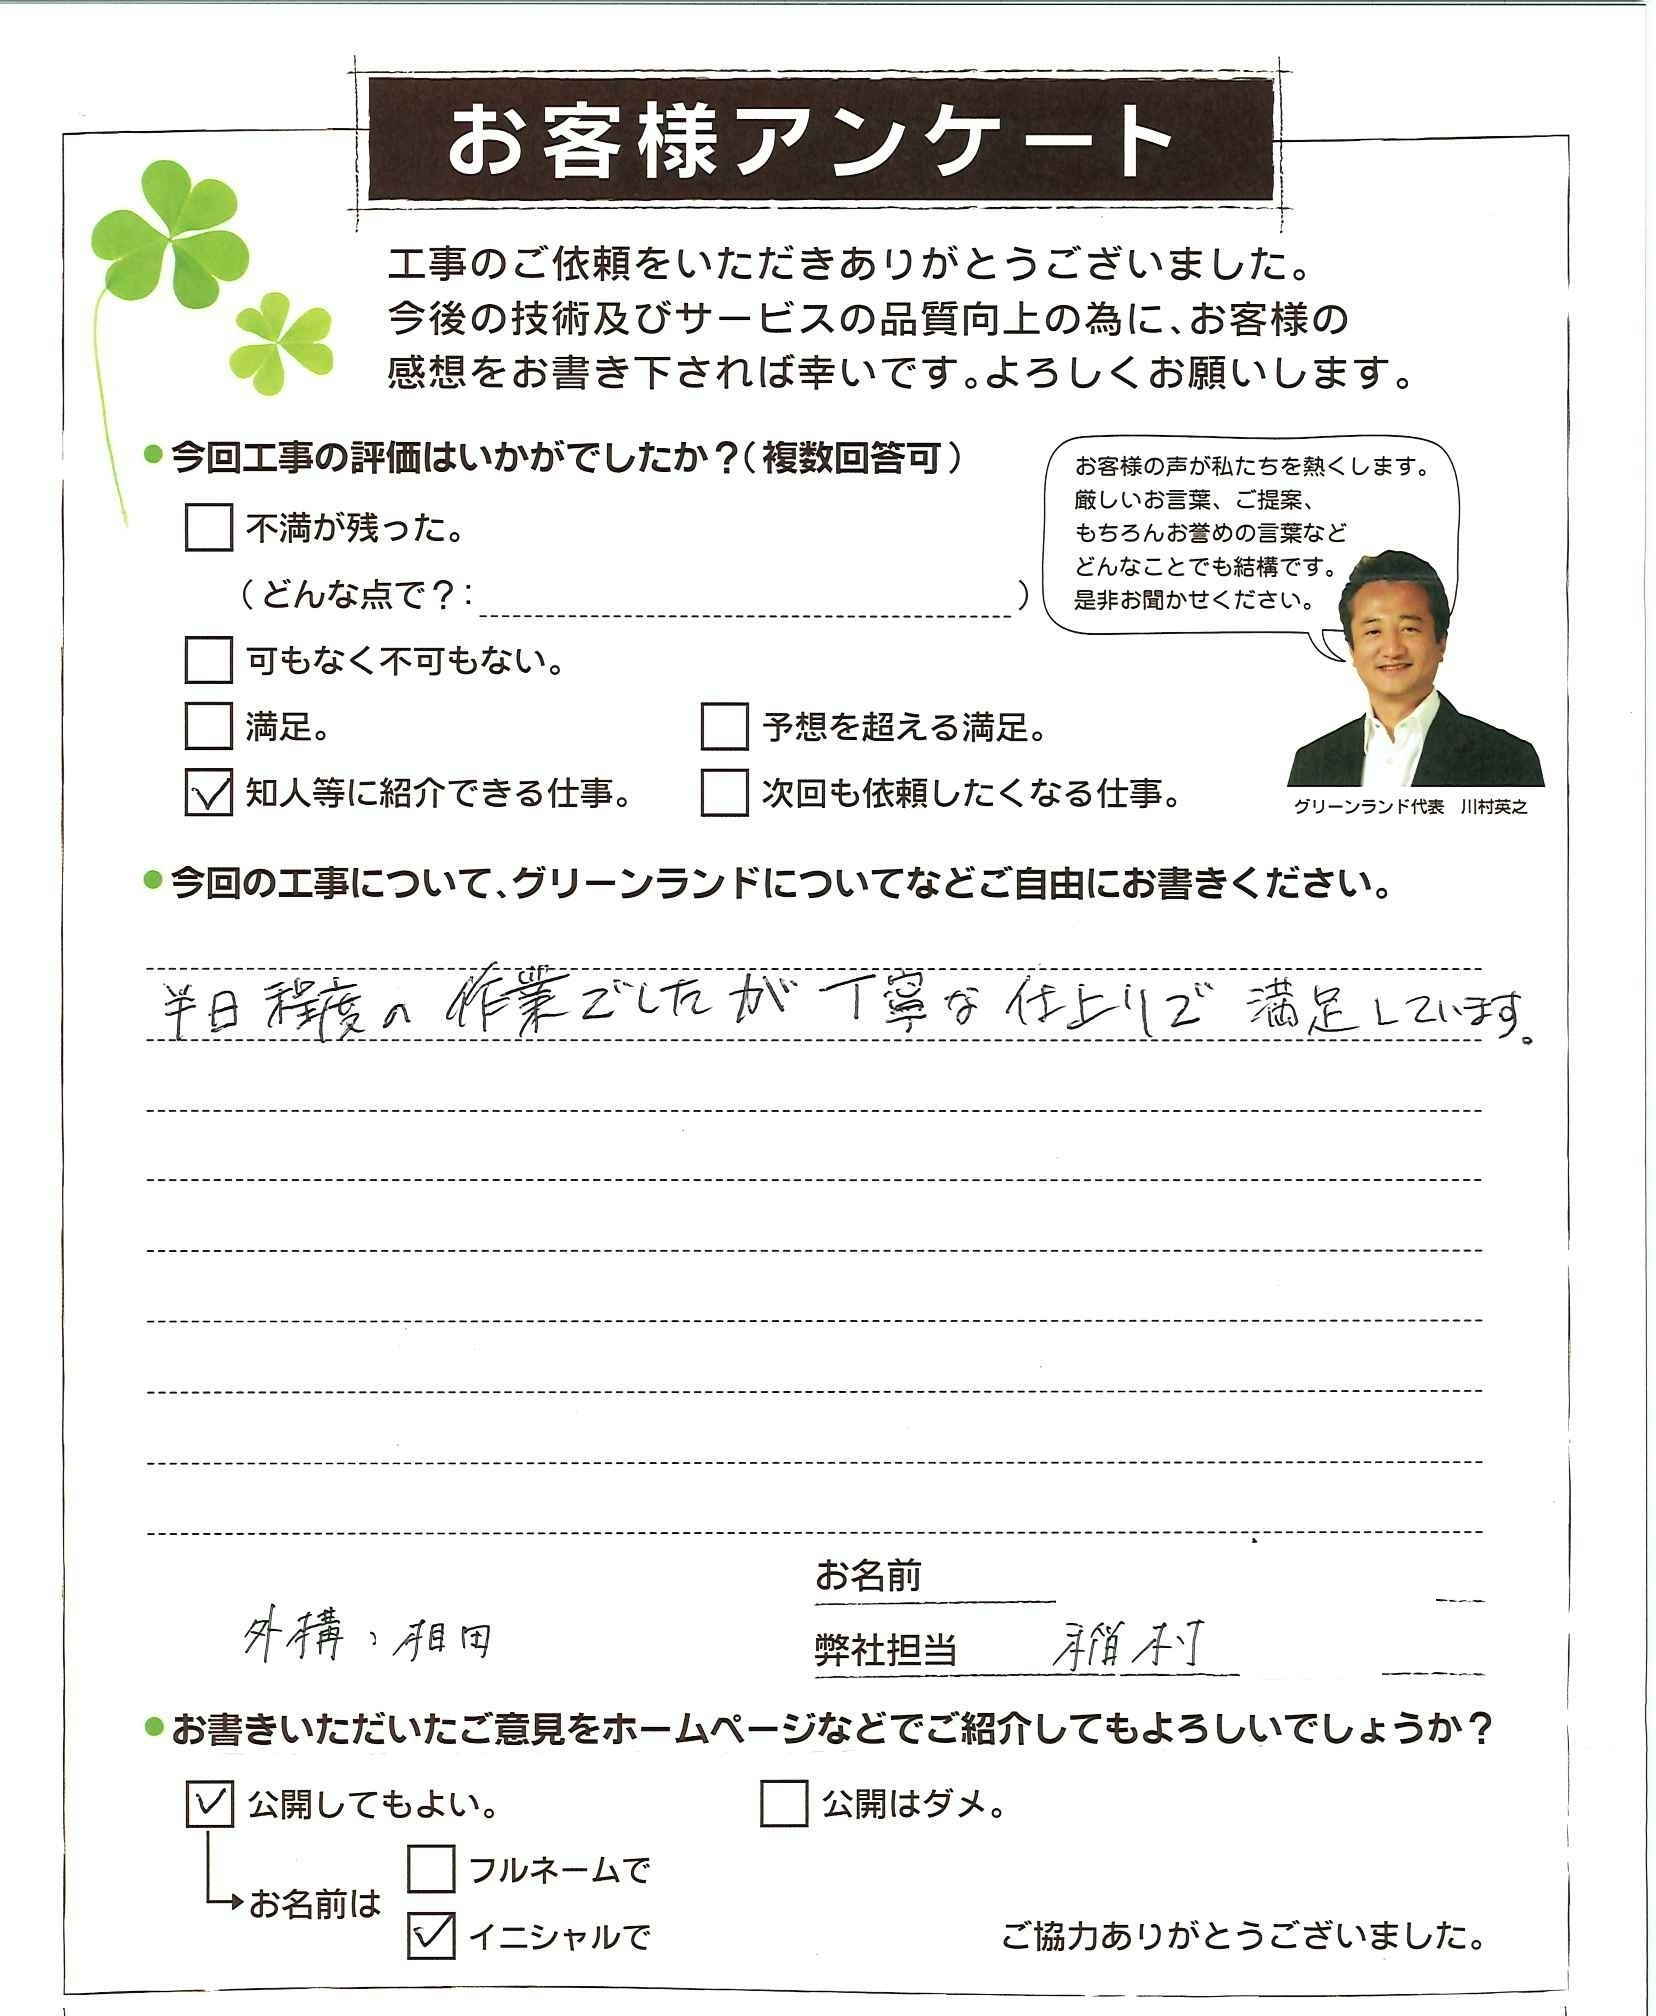 お客様アンケート
工事のご依頼をいただきありがとうございました。
今後の技術及びサービスの品質向上の為に、お客様の
感想をお書き下されば幸いです。よろしくお願いします。
今回工事の評価はいかがでしたか?(複数回答可)
不満が残った。
(どんな点で?: )
可もなく不可もない。
満足。
予想を超える満足。
知人等に紹介できる仕事。
次回も依頼したくなる仕事。
お客様の声が私たちを熱くします。
厳しいお言葉、ご提案、
もちろんお誉めの言葉など
どんなことでも結構です。
是非お聞かせください。
グリーンランド代表 川村英之
今回の工事について、グリーンランドについてなどご自由にお書きください。
半日程度の作業でしたが丁寧な仕上りで満足しています。
お名前
外構、相田
弊社担当 稲村
お書きいただいたご意見をホームページなどでご紹介してもよろしいでしょうか?
公開してもよい。
公開はダメ。
お名前は
フルネームで
イニシャルで
ご協力ありがとうございました。